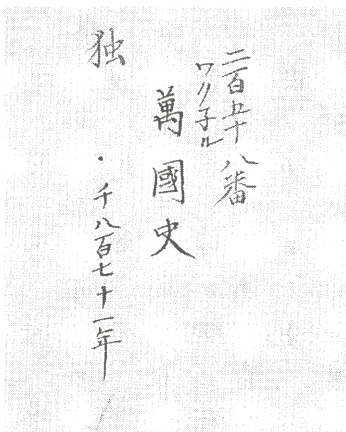 二百五十八番
ワリ子ル
萬國史
独
・千八百七十一年